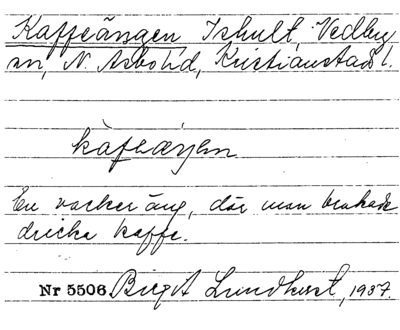 Kaffeängen, Ishult, Vedby
sn, N. Åsbo hd, Kristianstads l.
kafeäŋen
En vacker äng, där man brukade
dricka kaffe.
Nr 5506 Birgit Lundkvist, 1937.